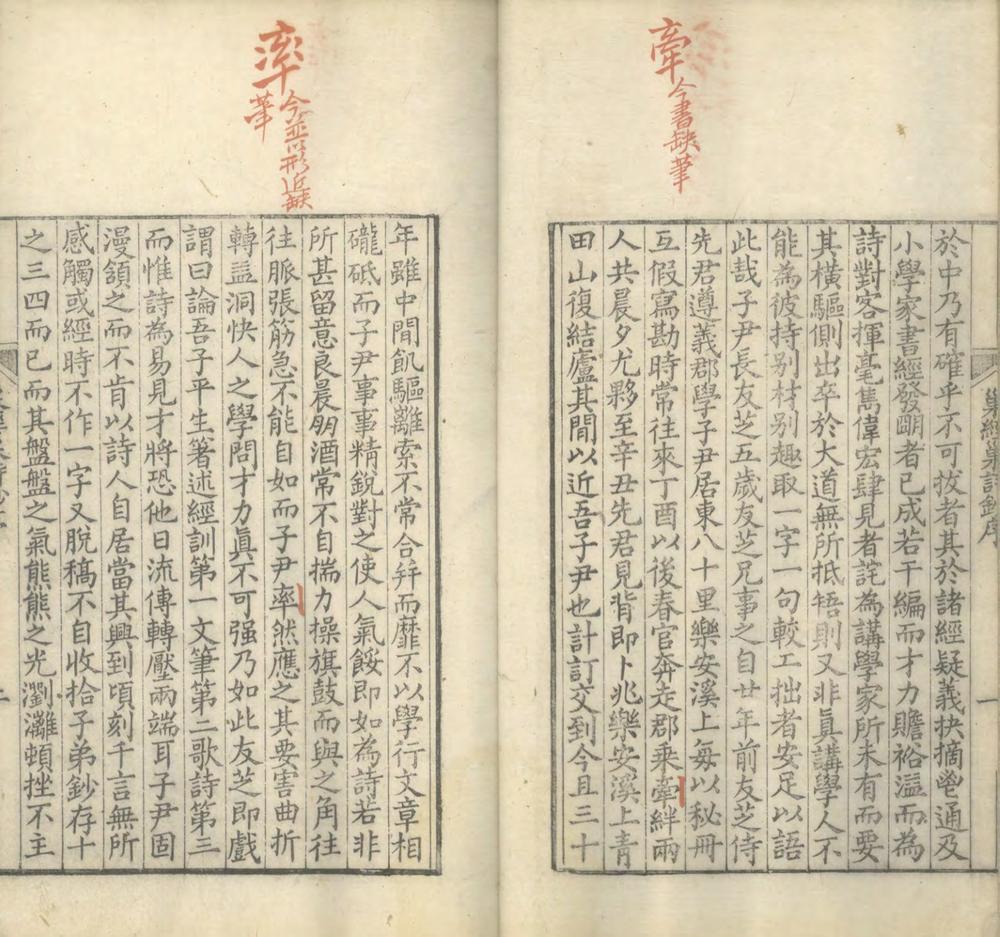 牽今書缺筆
巢經巢詩鈔序
一
於中乃有確乎不可拔者其於諸經疑義抉摘鬯通及
小學家書經發明者已成若干編而才力贍裕溢而為
詩對客揮毫雋偉宏肆見者詫為講學家所未有而要
其橫驅側出卒於大道無所抵牾則又非眞講學人不
能為彼持别材别趣取一字一句較工拙者安足以語
此哉子尹長友芝五歲友芝兄事之自廿年前友芝侍
先君遵義郡學子尹居東八十里樂安溪上每以秘冊
互假寫勘時常往來丁酉以後春官奔走郡乘牽絆兩
人共晨夕尤夥至辛丑先君見背即卜兆樂安溪上青
田山復結廬其閒以近吾子尹也計訂交到今且三十
率今並以形近缺
筆
年雖中閒飢驅離索不常合幷而靡不以學行文章相
礲砥而子尹事事精銳對之使人氣餒即如為詩若非
所甚留意良晨朋酒常不自揣力操旗鼓而與之角往
往脈張筋急不能自如而子尹率然應之其要害曲折
轉益洞快人之學問才力眞不可强乃如此友芝即戲
謂曰論吾子平生著述經訓第一文筆第二歌詩第三
而惟詩為易見才將恐他日流傳轉壓兩端耳子尹固
漫頷之而不肯以詩人自居當其興到頃刻千言無所
感觸或經時不作一字又脫稿不自收拾子弟鈔存十
之三四而已而其盤盤之氣熊熊之光瀏灕頓挫不主